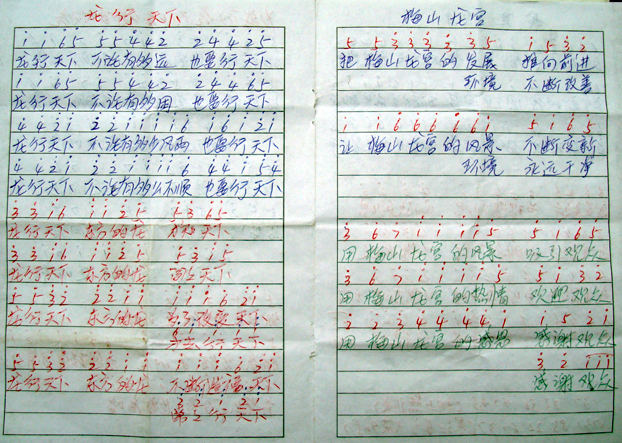 龙行天下
i i 6 5 5 5 4 4 2 2 4 4 2 5
龙行天下 不论有多远 也要行天下
i i 6 5 5 5 4 4 2 2 4 4 6 5
龙行天下 不论有多困 也要行天下
4 4 2 i 2 2 i i i 6 i 6 i 2 i
龙行天下 不论有多少风雨 也要行天下
4 4 2 i 2 2 i i i 6 4 4 i 5
龙行天下 不论有多么不顺 也要行天下
3 3 i 6 i i 2 5 5 3 6 5
龙行天下 东方的龙 天下
3 3 i 6 i i 2 5 5 3 i 5
龙行天下 东方的龙 天下
5 5 3 2 2 2 i i i i i 6 2 i
龙行天下 东方的龙 天下
行天下
5 5 3 2 i i i i i i i 6 2 i
龙行天下 东方的龙 天下
行天下
梅山龙宫
5 5 3 3 3 3 3 5 i 5 3 2
把 梅山龙宫的发展 推向前进
环境 不断改善
i i 6 6 6 6 6 i 5 i 6 5
让 梅山龙宫的风景 不断变新
环境 永远干净
3 6 7 i i i i 5 5 i 6 5
用 梅山龙宫的风景 吸引观众
3 6 7 i i i i i 5 i 3 2
用 梅山龙宫的热情 欢迎观众
2 2 3 4 4 4 4 i i 5 2 i
用 梅山龙宫的 感谢观众
3 2 i i i
感谢观众